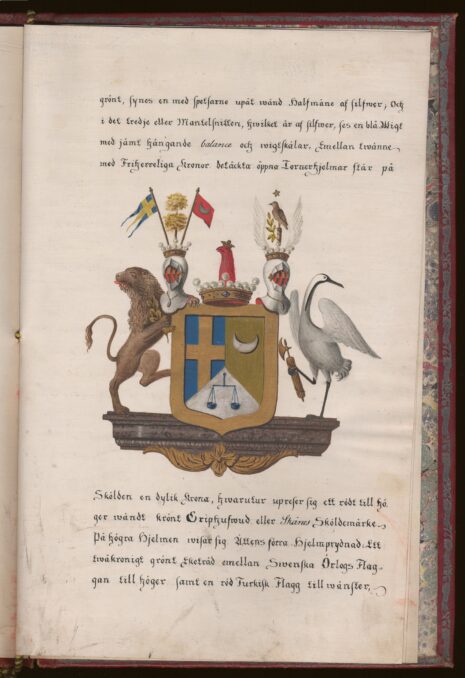 grönt, synes en med spetsarne upåt wänd Halfmåne af silfwer; Och
i det tredje eller Mantelsnitten, hwilket är af silfwer, ses en blå Wigt
med jämt hängande balance och wigtskålar. Emellan twänne
med Friherreliga Kronor betäckta öppna Tornerhjelmar står på
Skölden en dylik Krona, hwarutur upreser sig ett rödt till hö
ger wändt krönt Griphufwud eller Skånes Sköldemärke.
På högra Hjelmen wisar sig Ättens förra Hjelmprydnad. Ett
twåkronigt grönt Eketräd emellan Swenska Örlogs Flag-
gan till höger samt en röd Turkisk Flagg till wänster,